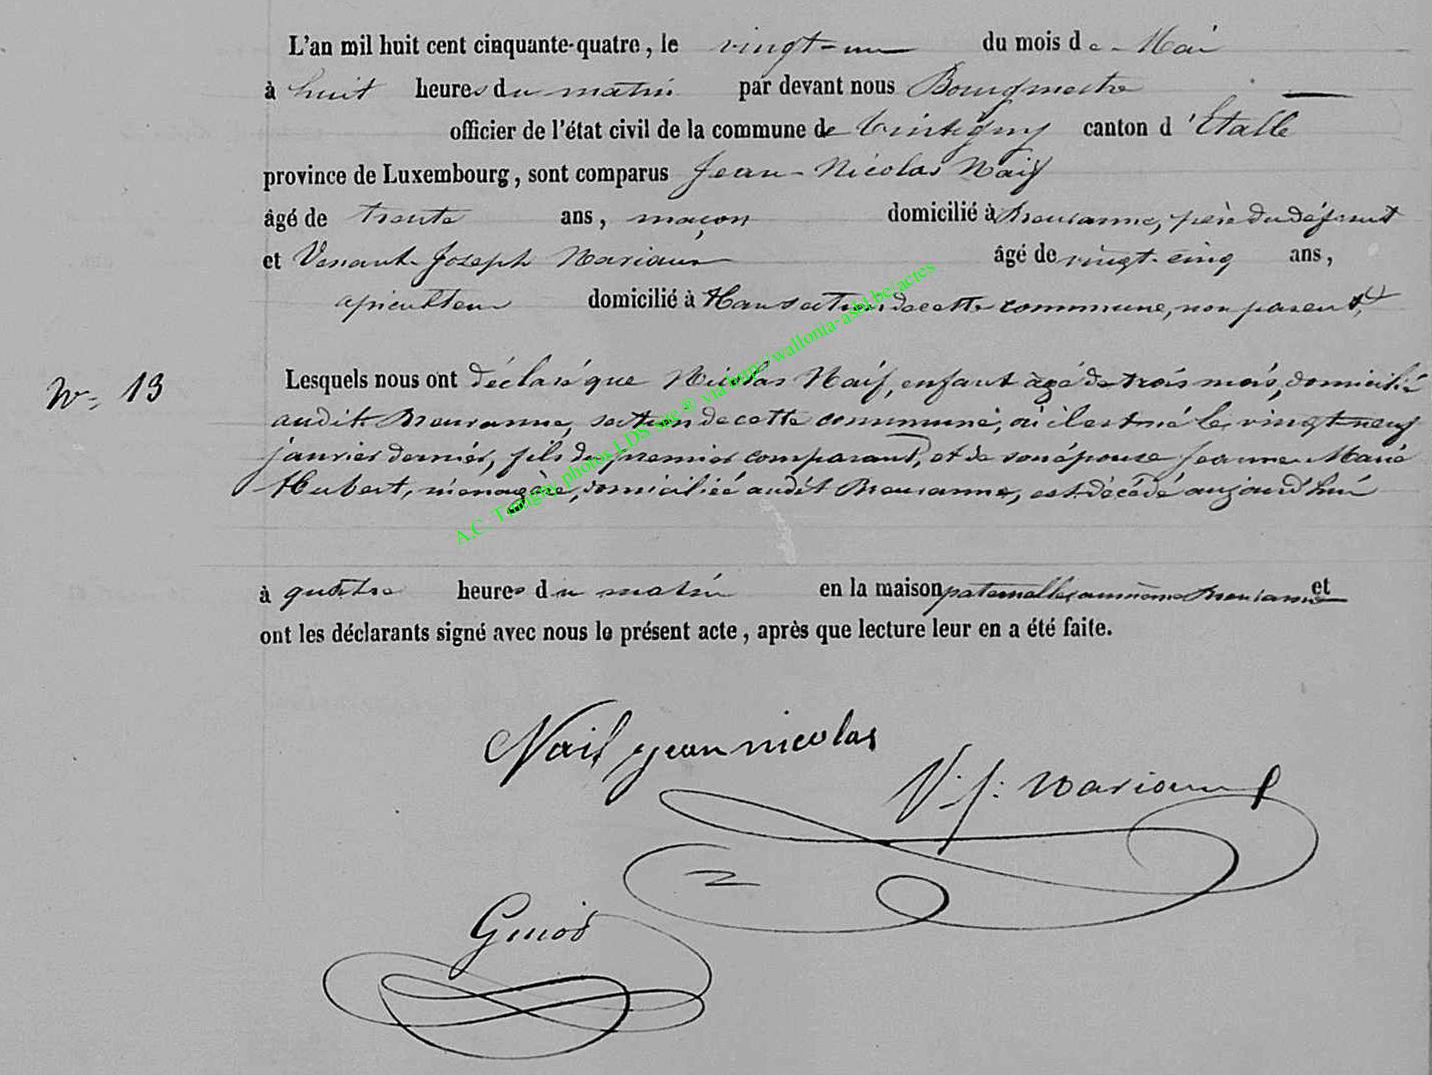 L'an mil huit cent cinquante-quatre, le vingt-un du mois de Mai
à huit heures du matin par devant nous Bourgmestre
officier de l'état civil de la commune de Tintigny canton d'Etalle
province de Luxembourg, sont comparus Jean-Nicolas Naif
âgé de trente ans, maçon domicilié à Breuvanne, père du défunt
et Venant Joseph Mariaux âgé de vingt-cinq ans,
apiculteur domicilié à Han section de cette commune, non parent,
N° 13
Lesquels nous ont déclaré que Nicolas Naif, enfant âgé de trois mois, domicilié
audit Breuvanne, section de cette commune, où il est né le vingt neuf
janvier dernier, fils du premier comparant, et de son épouse Jeanne Marie
Hubert, ménagère, domiciliée audit Breuvanne, est décédé aujourd'hui
à quatre heures du matin en la maison paternelle, au même Breuvanne et
ont les déclarants signé avec nous le présent acte, après que lecture leur en a été faite.
Naif jean nicolas
V. j. Mariaux
A.C. Tintigny photos LDS site ® via http://wallonia-asbl.be/actes